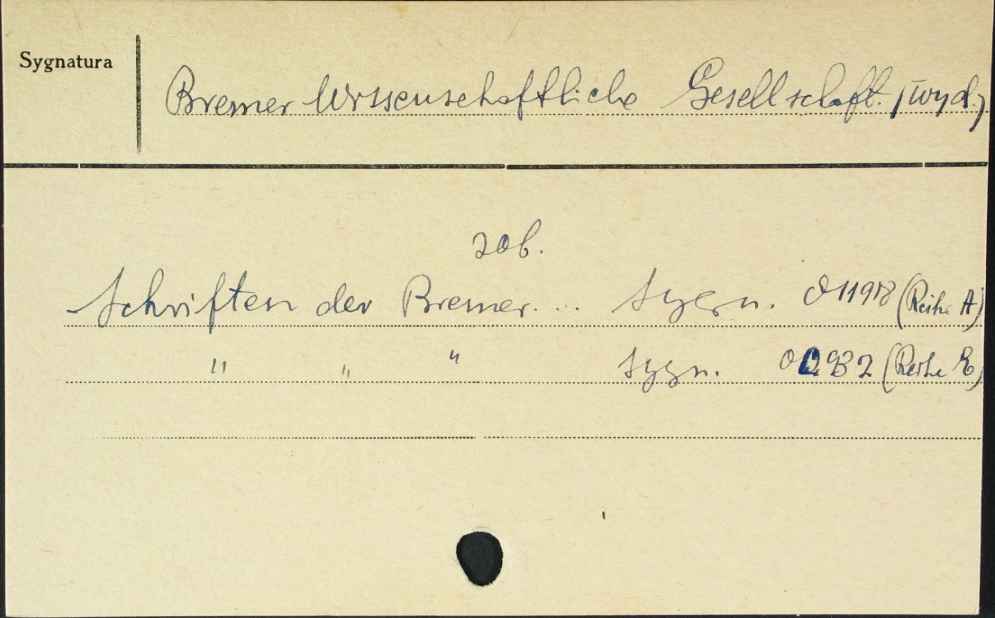 Sygnatura
Bremer Wissenschaftliche Gesellschaft. /wyd./
zob.
Schriften der Bremer... Sygn. (Reihe A)
" " " Sygn. (Reihe E)